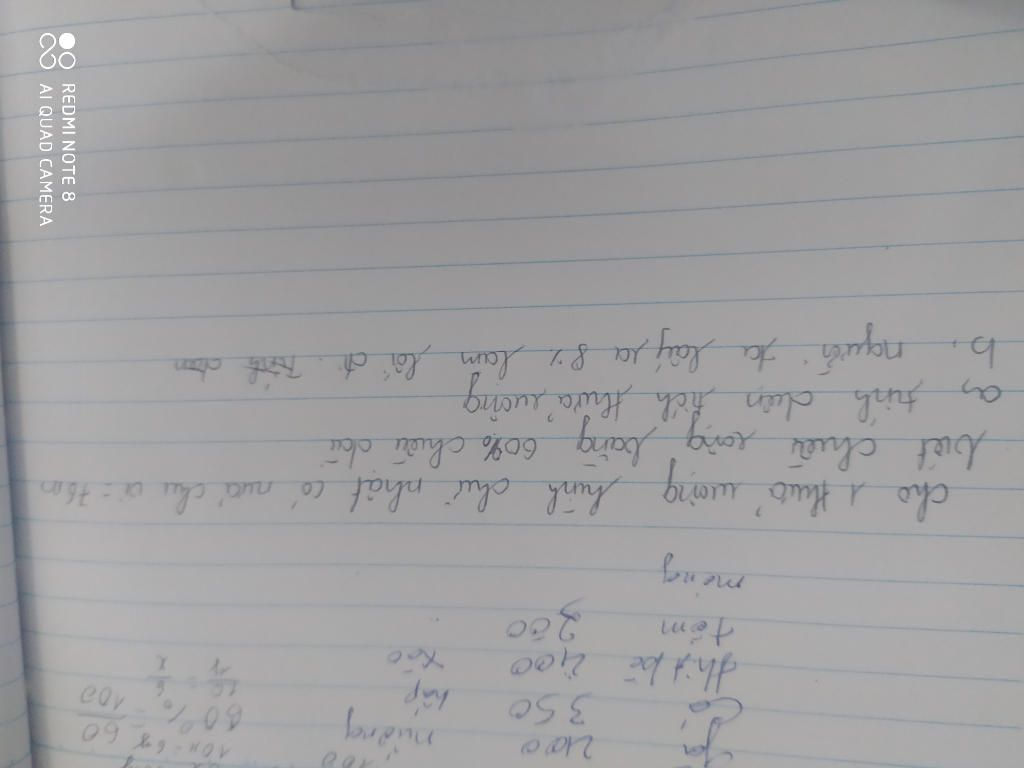 Gà 400 nướng 100
Cá 350 hấp
thịt bò 400 xào
tôm 200
mông
10x = 6y
60% = 60/100
10/y = 6/x
cho 1 thửa ruộng hình chữ nhật có nửa chu vi = 76m
biết chiều rộng bằng 60% chiều dài
a, tính diện tích thửa ruộng
b. người ta lấy ra 8% làm lối đi.
REDMI NOTE 8
AI QUAD CAMERA